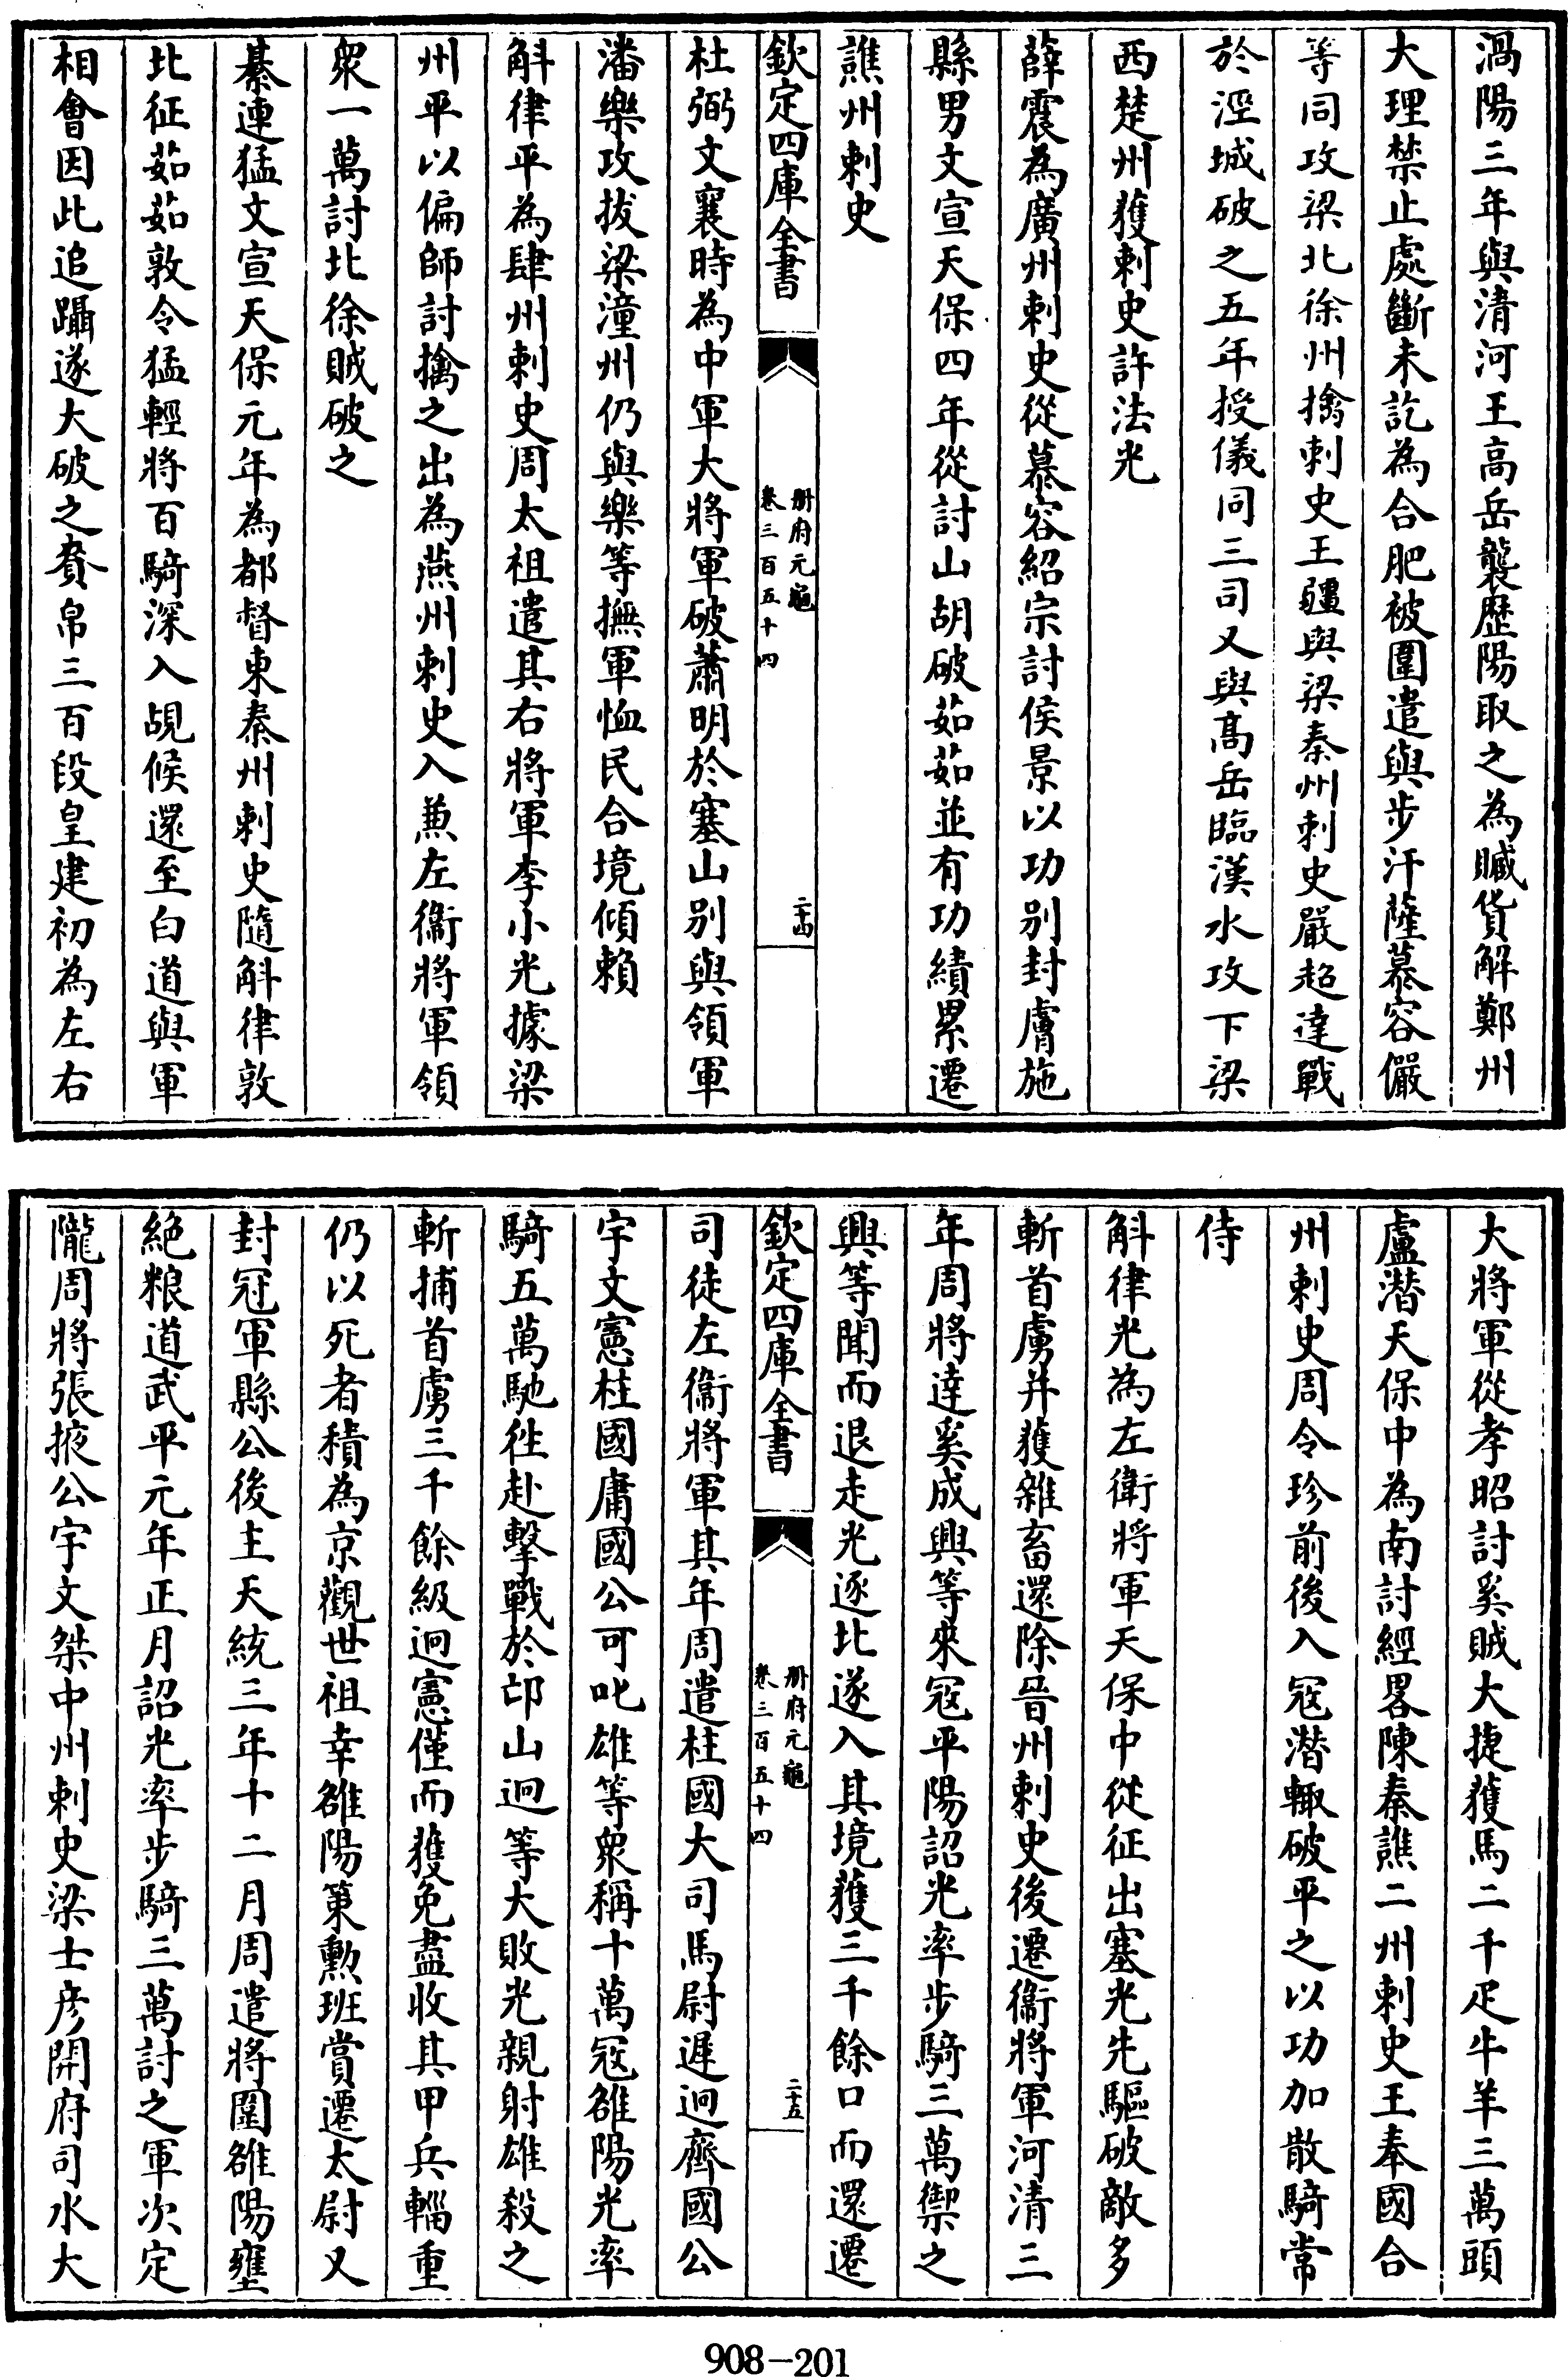 渦陽三年與清河王高岳襲歴陽取之為贓貨解鄭州
大理禁止處斷未訖為合肥被圍遣與步汗薩慕容儼
等同攻梁北徐州擒刺史王彊與梁秦州刺史嚴超達戰
於涇城破之五年授儀同三司又與髙岳臨漢水攻下梁
西楚州獲刺史許法光
薛震為廣州刺史從慕容紹宗討侯景以功别封膚施
縣男文宣天保四年從討山胡破茹茹並有功績累遷
譙州刺史
欽定四庫全書
册府元龜
卷三百五十四
二十四
杜弼文襄時為中軍大將軍破蕭明於塞山别與領軍
潘樂攻拔梁潼州仍與樂等撫軍恤民合境傾賴
斛律平為肆州刺史周太祖遣其右將軍李小光據梁
州平以偏師討擒之出為燕州刺史入兼左衞將軍領
衆一萬討北徐賊破之
綦連猛文宣天保元年為都督東秦州刺史隨斛律敦
北征茹茹敦令猛輕將百騎深入覘候還至白道與軍
相會因此追躡遂大破之賚帛三百段皇建初為左右
大將軍從孝昭討奚賊大捷獲馬二千疋牛羊三萬頭
盧潛天保中為南討經畧陳秦譙二州刺史王奉國合
州刺史周令珍前後入冦潛輙破平之以功加散騎常
侍
斛律光為左衛將軍天保中從征出塞光先驅破敵多
斬首虜并獲雜畜還除晉州刺史後遷衞將軍河清三
年周將達奚成興等來冦平陽詔光率步騎三萬禦之
興等聞而退走光逐北遂入其境獲三千餘口而還遷
欽定四庫全書
册府元龜
卷三百五十四
二十五
司徒左衞將軍其年周遣柱國大司馬尉遲迥齊國公
宇文憲柱國庸國公可叱雄等衆稱十萬冦雒陽光率
騎五萬馳徃赴擊戰於邙山迥等大敗光親射雄殺之
斬捕首虜三千餘級迥憲僅而獲免盡收其甲兵輜重
仍以死者積為京觀世祖幸雒陽䇿勲班賞遷太尉又
封冠軍縣公後主天統三年十二月周遣將圍雒陽壅
絶粮道武平元年正月詔光率步騎三萬討之軍次定
隴周將張掖公宇文桀中州刺史梁士彦開府司水大
908-201